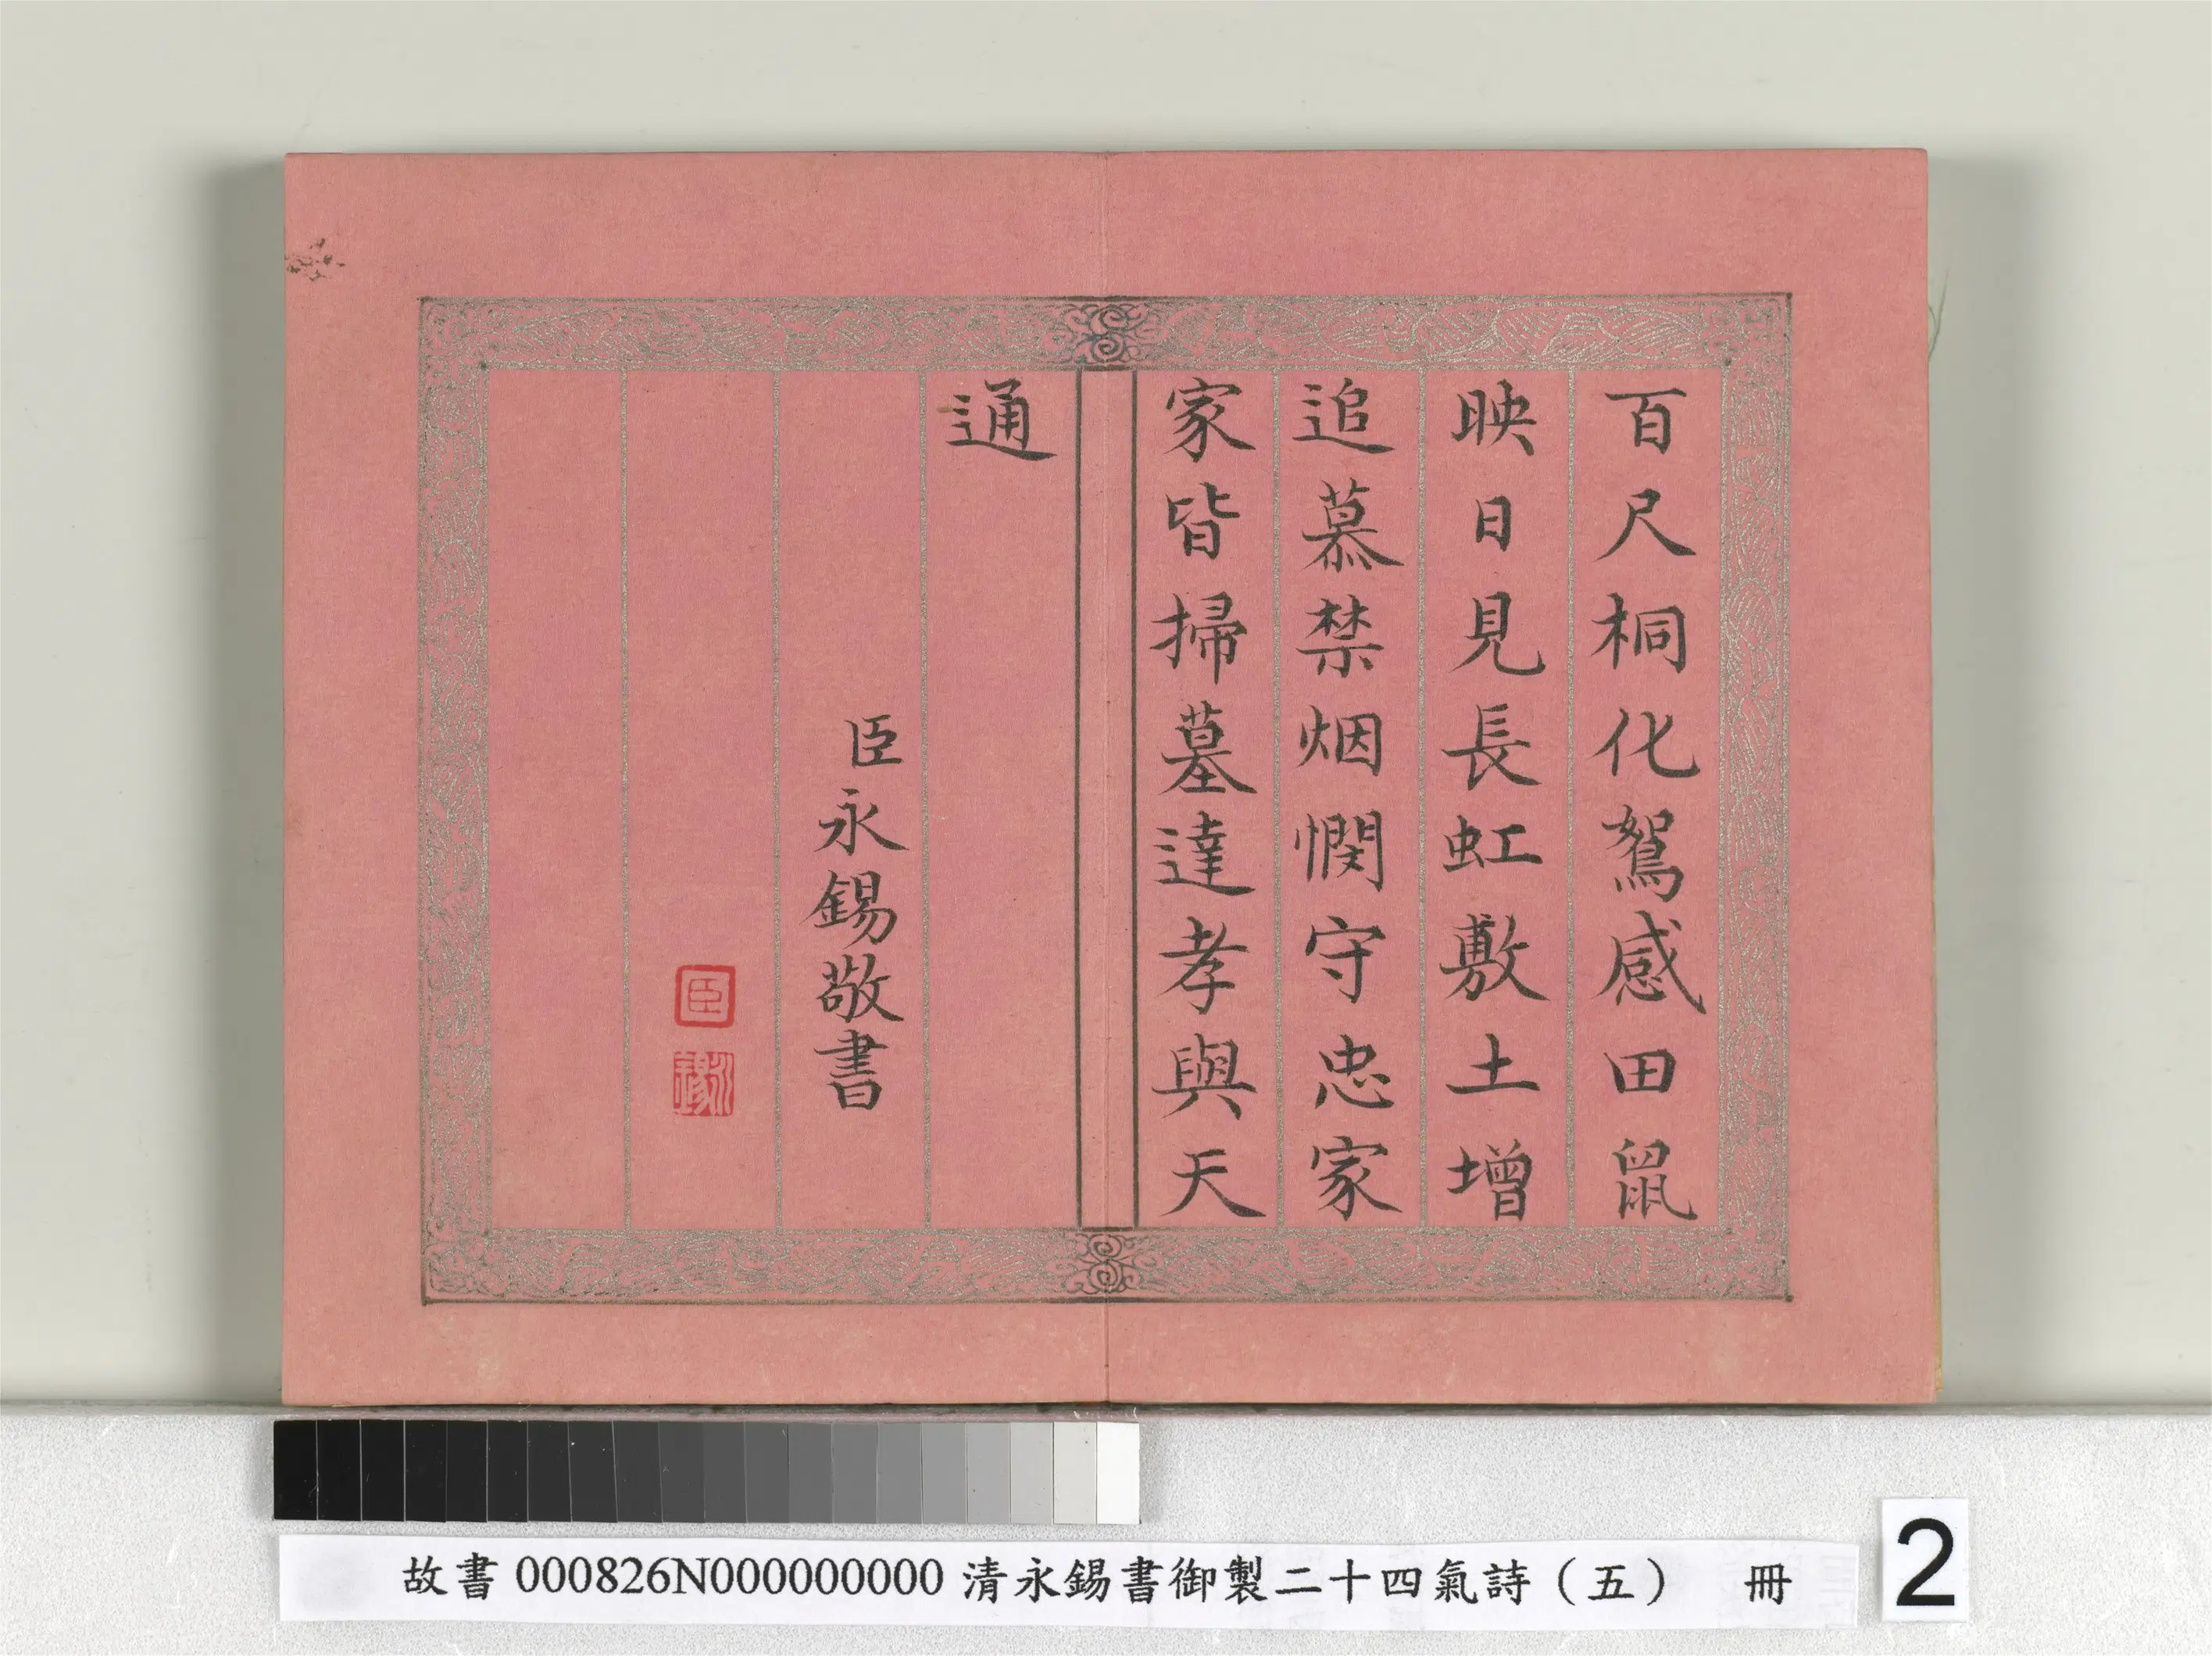 百尺桐化鴽感田鼠
映日見長虹敷土增
追慕禁烟憫守忠家
家皆掃墓達孝與天
通
臣永錫敬書
臣
永錫
故書000826N000000000清永錫書御製二十四氣詩（五） 冊
2